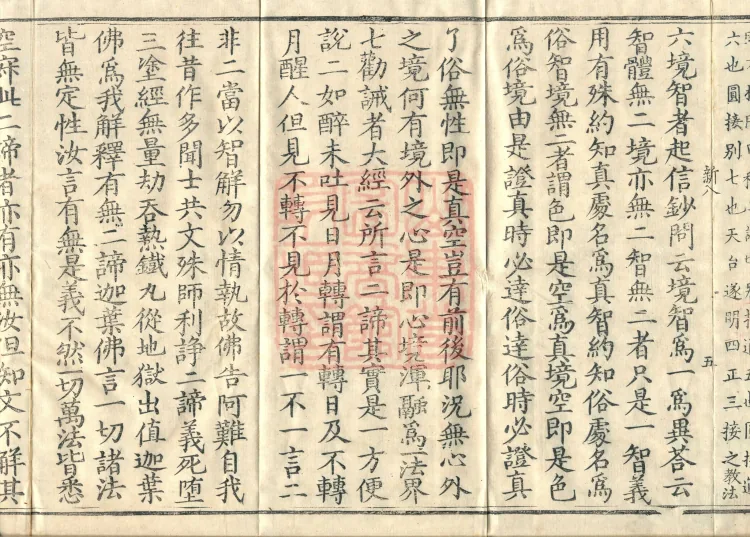 六也圓接別七也天台遂明四正三接之教法
五
六境智者起信鈔問云境智爲一爲異荅云
智體無二境亦無二智無二者只是一智義
用有殊約知真處名爲真智約知俗處名爲
俗智境無二者謂色即是空爲真境空即是色
爲俗境由是證真時必達俗達俗時必證真
了俗無性即是真空豈有前後耶況無心外
之境何有境外之心是即心境渾融爲一法界
七勸誡者大經云所言二諦其實是一方便
說二如醉未吐見日月轉謂有轉日及不轉
月醒人但見不轉不見於轉謂一不一言二
非二當以智解勿以情執故佛告阿難自我
往昔作多聞士共文殊師利諍二諦義死墮
三塗經無量劫吞熱鐵丸從地獄出值迦葉
佛爲我解釋有無二諦迦葉佛言一切諸法
皆無定性汝言有無是義不然一切萬法皆悉
空寂此二諦者亦有亦無汝但知文不解其